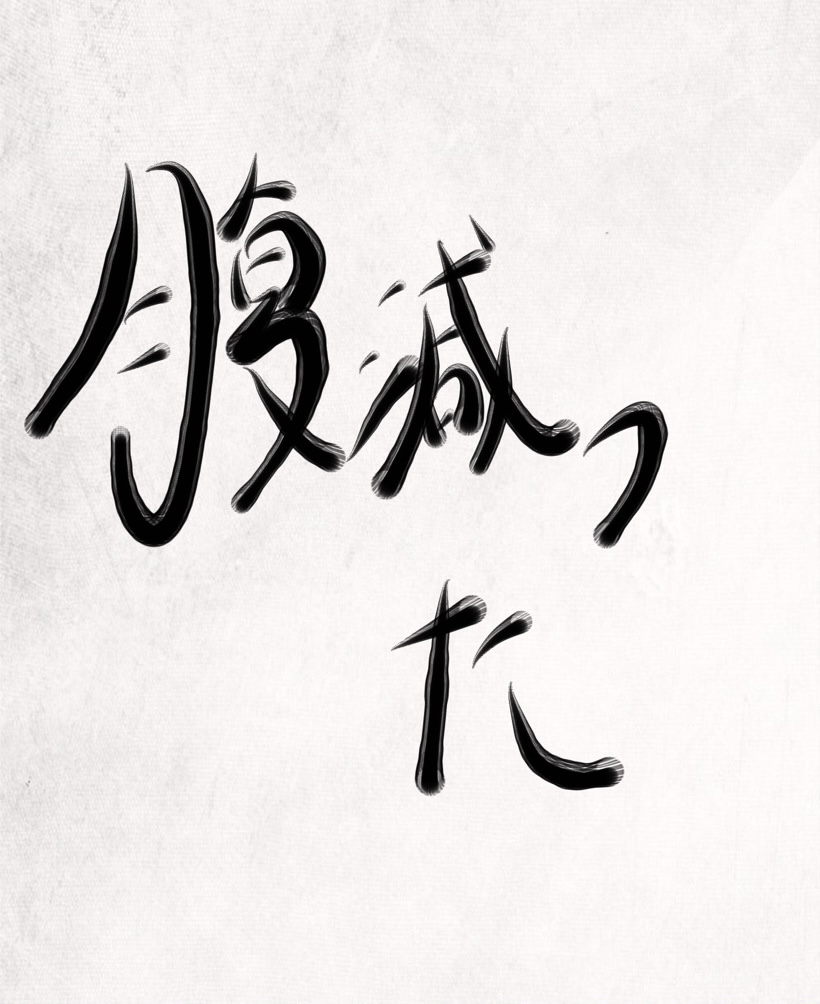 腹減っ
た